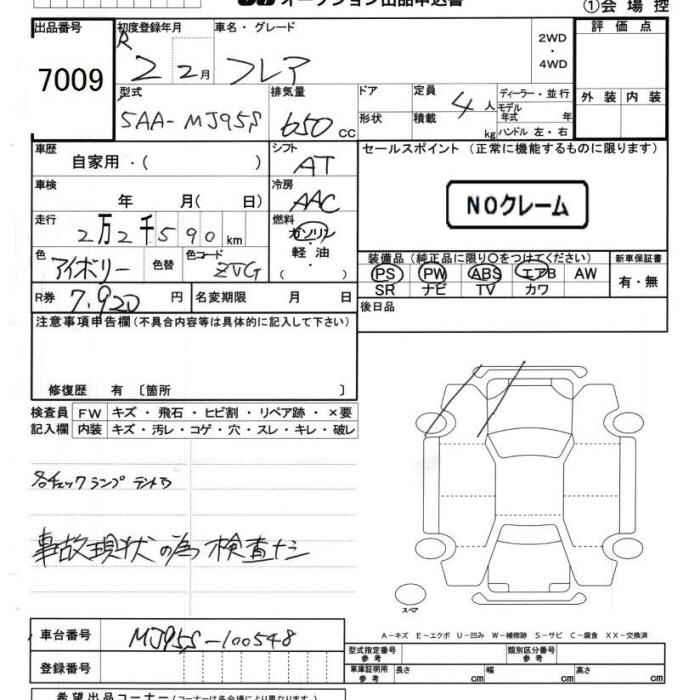 オークション出品申込書 ①会場控
出品番号 初度登録年月 車名・グレード 2WD・4WD 評価点
7009 R2 2月 フレア
型式 排気量 ドア 定員 4人 ディーラー・並行 外装 内装
5AA-MJ95S 650cc 形状 積載 kg モデル年式 年 ハンドル 左・右
車歴 自家用・( ) シフト AT セールスポイント (正常に機能するものに限ります)
車検 年 月( 日) 冷房 AAC NOクレーム
走行 2万2千590km 燃料 ガソリン・軽油・( )
色 アイボリー 色替 色コード ZVG 装備品(純正品に限り○をつけてください) 新車保証書
PS PW ABS エアB AW 有・無
SR ナビ TV カワ
R券 7,920円 名変期限 月 日 後日品
注意事項申告欄(不具合内容等は具体的に記入して下さい)
修復歴 有 〔箇所 〕
検査員 FW キズ・飛石・ヒビ割・リペア跡・×要
記入欄 内装 キズ・汚レ・コゲ・穴・スレ・キレ・破レ
各チェックランプ テントウ
事故現状の為 検査ナシ
スペア
A－キズ E－エクボ U－凹み W－補修跡 S－サビ C－腐食 XX－交換済
車台番号 MJ95S-100548
型式指定番号 参考 類別区分番号 参考
登録番号 車庫証明用 参考 長さ cm 幅 cm 高さ cm
希望出品コーナー(コーナーは各会場により異なります)